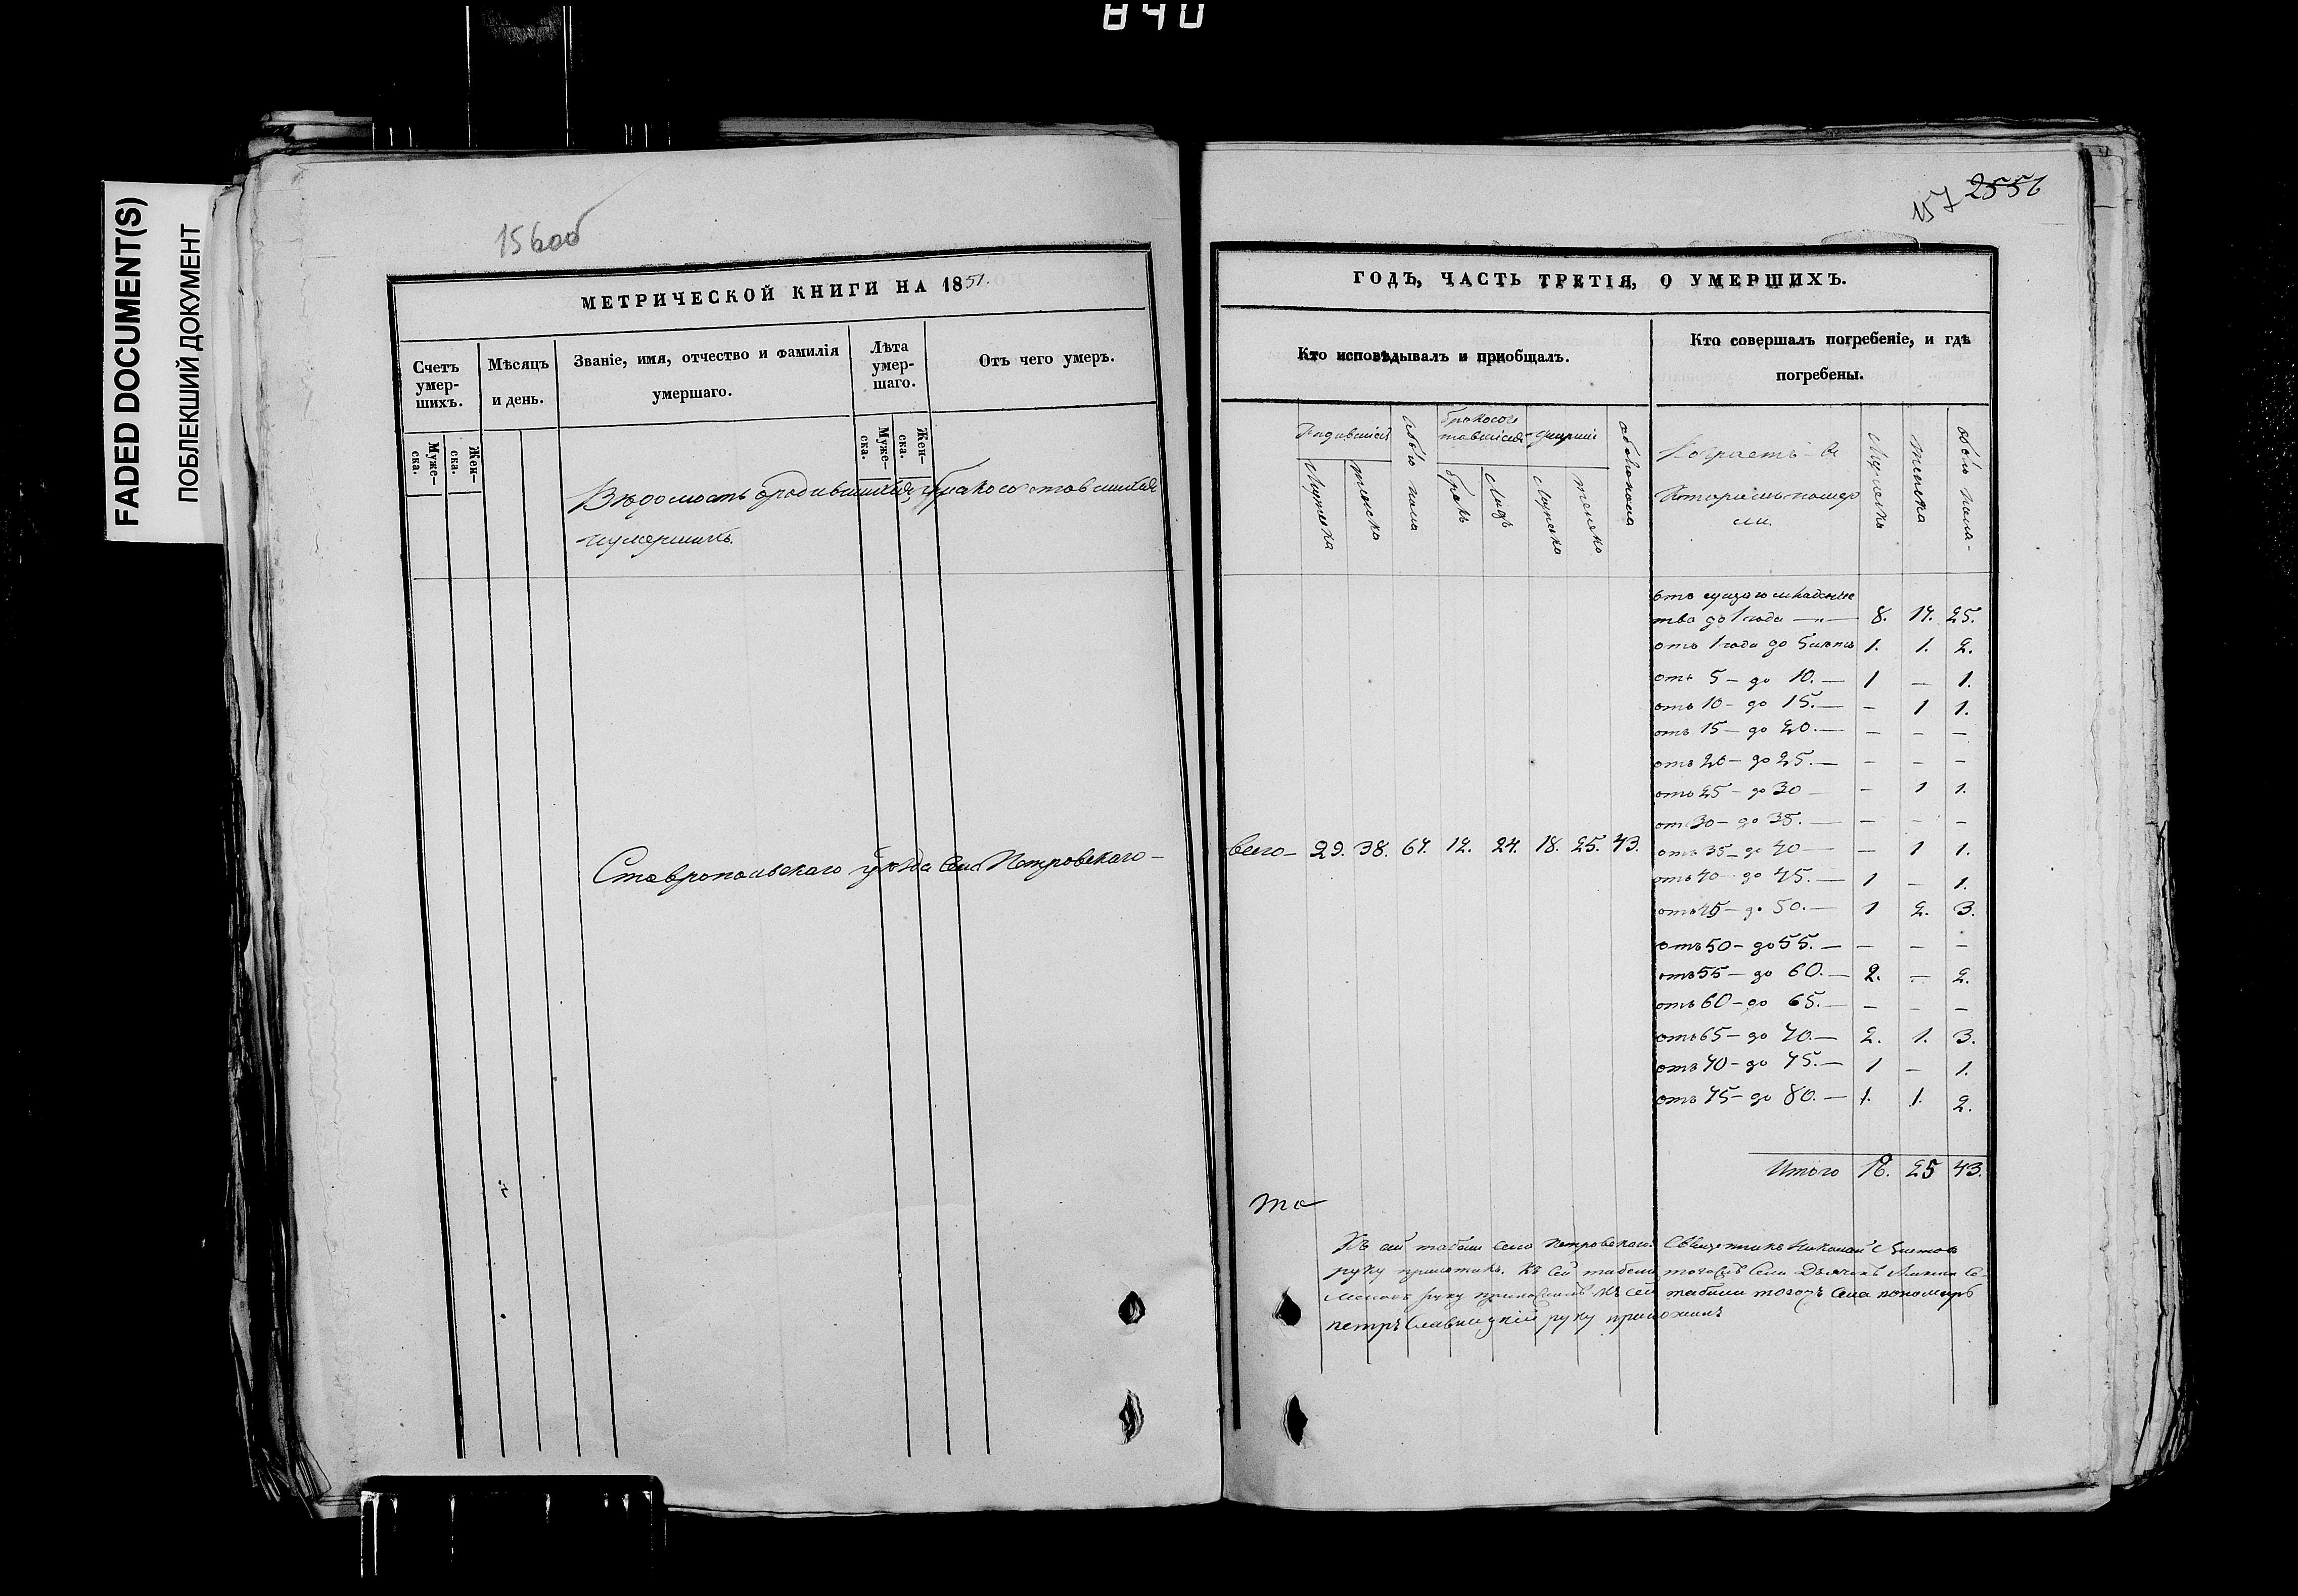 840
FADED DOCUMENT(S)
ПОБЛЕКШИЙ ДОКУМЕНТ
156об
МЕТРИЧЕСКОЙ КНИГИ НА 1851.
Счетъ умер-шихъ.
Мѣсяцъ и день.
Званіе, имя, отчество и фамилія умершаго.
Лѣта умер-шаго.
Отъ чего умеръ.
Муже-ска.
Жен-ска.
Муже-ска.
Жен-ска.
Вѣдомость о родившихся, бракосочетавшихся
и умершихъ.
Ставропольскаго уѣзда Села Петровскаго —
157 2556
ГОДЪ, ЧАСТЬ ТРЕТІЯ, О УМЕРШИХЪ.
Кто исповѣдывалъ и пріобщалъ.
Кто совершалъ погребеніе, и гдѣ
погребены.
Родившіеся
Обоего пола
Бракосоче
тавшіеся
умершіе
обоего пола
Мужеска
женска
браки
Лицъ
Мужеска
женска
которыхъ померли.
Мужеска
женска
обоего пола
отъ младенче
тва до 1 года — 8. 17. 25.
отъ 1 года до 5 лѣтъ 1. 1. 2.
отъ 5 – до 10. — 1 — 1.
отъ 10 – до 15. — – 1 1.
отъ 15 – до 20. — – – –
отъ 20 – до 25. — – – –
отъ 25 – до 30 — – 1 1.
отъ 30 – до 35. — – – –
Всего – 29. 38. 67. 12. 24. 18. 25. 43.
отъ 35 – до 40 — – 1 1.
отъ 40 – до 45. — 1 – 1.
отъ 45 – до 50. — 1 2. 3.
отъ 50 – до 55. — – – –
отъ 55 – до 60. — 2. – 2.
отъ 60 – до 65. — – – –
отъ 65 – до 70. — 2. 1. 3.
отъ 70 – до 75. — 1 – 1.
отъ 75 – до 80. — 1. 1. 2.
Итого 18. 25 43.
Къ сей табели села Петровскаго Священникъ Николай
руку приложилъ. Къ сей табели тогожъ Села Дьячекъ
руку приложилъ Къ сей табели тогожъ Села пономарь
петръ Славницкій руку приложилъ